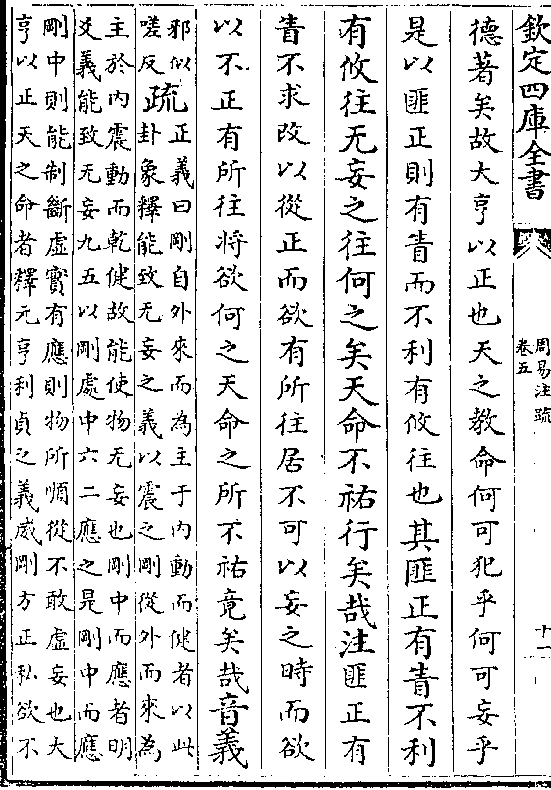 欽定四庫全書
周易注疏
卷五
十一
德著矣故大亨以正也天之教命何可犯乎何可妄乎
是以匪正則有眚而不利有攸往也其匪正有眚不利
有攸往无妄之往何之矣天命不祐行矣哉注匪正有
眚不求改以從正而欲有所往居不可以妄之時而欲
以不正有所往將欲何之天命之所不祐竟矣哉音義
邪似
嗟反
疏
正義曰剛自外來而為主于內動而健者以此
卦象釋能致无妄之義以震之剛從外而來為
主於內震動而乾健故能使物无妄也剛中而應者明
爻義能致无妄九五以剛處中六二應之是剛中而應
剛中則能制斷虛實有應則物所順從不敢虛妄也大
亨以正天之命者釋元亨利貞之義威剛方正私欲不